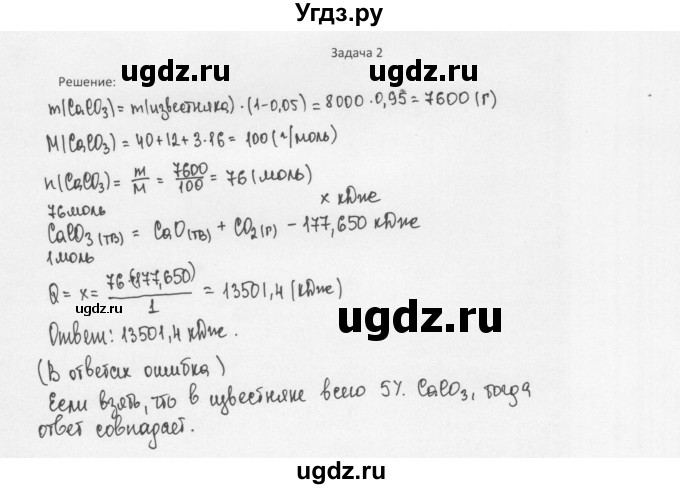 Угдз.ру
Задача 2
Решение:
ugdz.ru
ugdz.ru
m(CaCO₃) = m(известняка) · (1-0,05) = 8000 · 0,95 = 7600 (г)
M(CaCO₃) = 40+12+3·16 = 100 (г/моль)
n(CaCO₃) = m/M = 7600/100 = 76 (моль)
76 моль x кДже
CaCO₃(тв) = CaO(тв) + CO₂(г) - 177,650 кДже
1 моль
Q = x = 76·(177,650)/1 = 13501,4 (кДже)
ugdz.ru
ugdz.ru
Ответ: 13501,4 кДже.
(В ответах ошибка)
Если взять, что в известняке всего 5% CaCO₃, тогда
ответ совпадает.
ugdz.ru